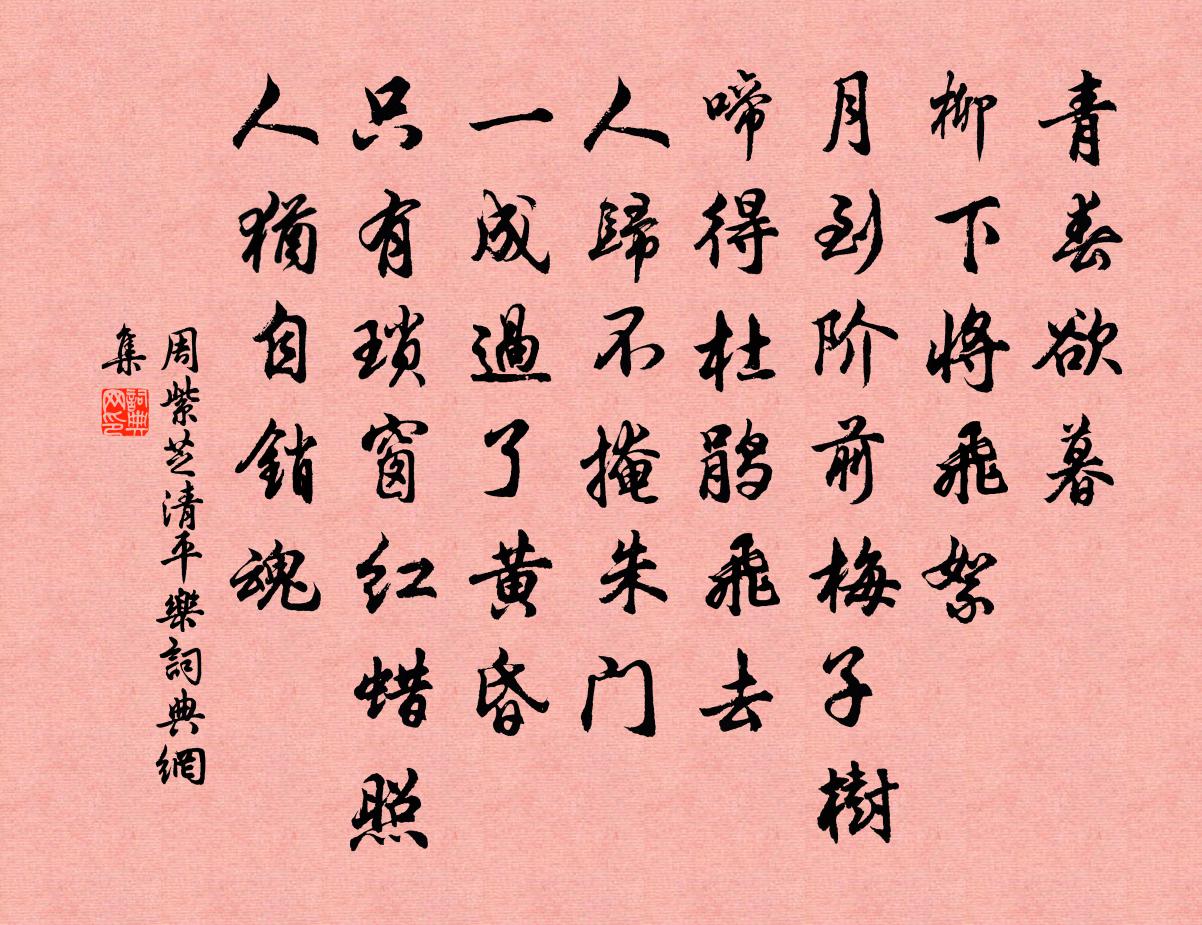 青春欲暮
柳下将飛絮
月到阶前梅子樹
啼得杜鹃飛去
人歸不掩朱门
一成過了黄昏
只有瑣窗红蜡照
人猶自銷魂
周紫芝清平樂詞典網
集
詞典
网印